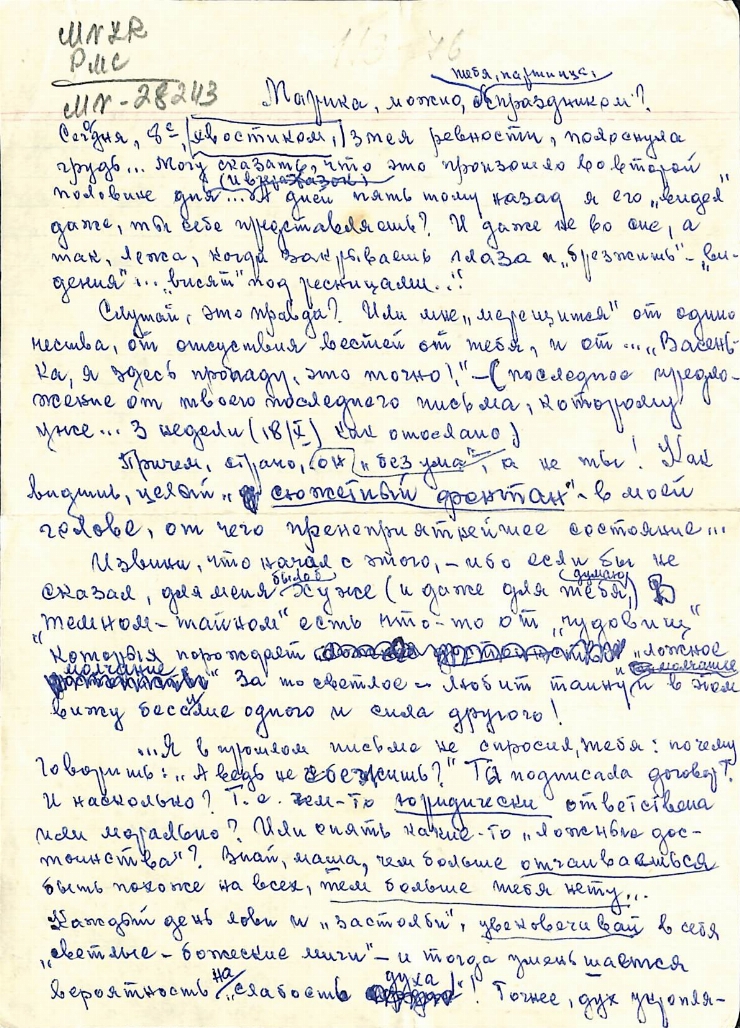 MNKR
РМС
MN-28243
113-76
тебя, партийца,
Марика, можно, с праздником?
Сегодня, 8е, "хвостиком", змея ревности, полоснула
грудь... Могу сказать, что это произошло во второй
половине дня... А дней пять тому назад я его "видел"
даже, ты себе представляешь? И даже не во сне, а
так, лежа, когда закрываешь глаза и "брезжишь" - "ви-
дения"... "висят" под ресницами..."
Слушай, это правда? Или мне "мерещится" от одино
чества, от отсуствия вестей от тебя, и от... "Васень-
ка, я здесь пропаду, это точно!," - (последнее предло-
жение от твоего последнего письма, которому
уже... 3 недели (18/X) как отослано)
Причем, страно, он "без ума", а не ты! Как
видишь, целый "сюжетный фонтан" - в моей
голове, от чего пренеприятнейшее состояние...
Извини, что начал с этого, - ибо если бы не
сказал, для меня было б хуже (и даже для тебя, думаю) В
"темном-тайном" есть что-то от "чудовищ"
которыя порождает "ложное
молчание" За то светлое - любит таину и в этом
вижу бессилие одного и сила другого!
...Я в прошлом письме не спросил, тебя: почему
говоришь: "А ведь не сбежишь?" Ты подписала договор?.
И насколько? Т.е. чем-то юридически ответствена
или морально? Или опять какие-то "ложные дос-
тоинства"? Знай, маша, чем больше отчаиваешься
быть похоже на всех, тем больше тебя нету...
Каждый день лови и "застолби", увековечивай в себя
"светлые - божеские миги" - и тогда уменьшается
вероятность на "слабость духа"! Точнее, дух укропля-